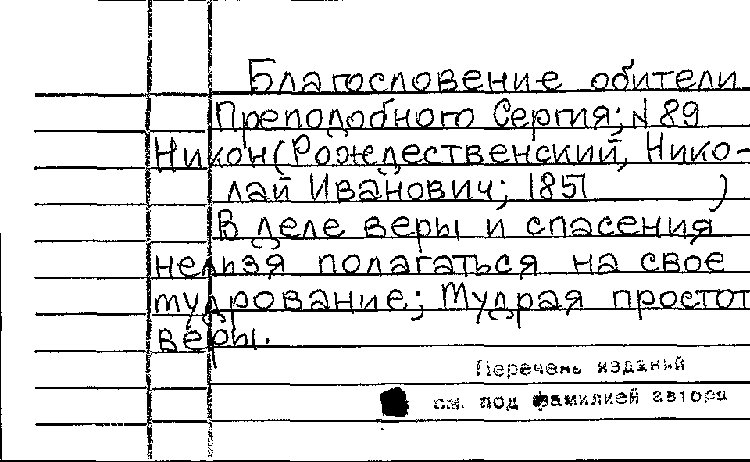 Благословение обители
Преподобного Сергия; № 89
Никон (Рождественский, Нико-
лай Иванович; 1851 )
В деле веры и спасения
нельзя полагаться на свое
мудрование; Мудрая простот
веры.
Перечень изданий
см. под фамилией автора